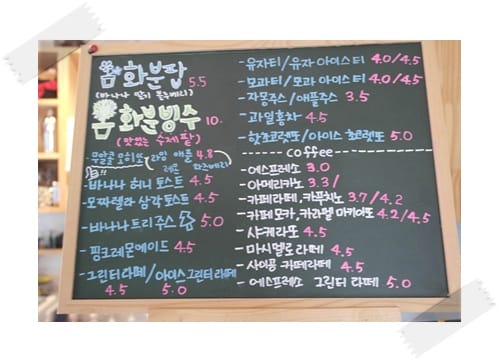 봄 화분팝 5.5
(바나나 딸기 블루베리)
봄 화분빙수 10.
(맛있는 수제팥)
무알콜 모히또 (라임 애플 4.8
레몬 라즈베리)
- 바나나 허니 토스트 4.5
- 모짜렐라 삼각 토스트 4.5
- 바나나트리 주스 5.0
- 핑크레몬에이드 4.5
- 그린티라떼/아이스그린티라떼
4.5 5.0
- 유자티/유자 아이스티 4.0/4.5
- 모과티/모과 아이스티 4.0/4.5
- 자몽주스/애플주스 3.5
- 과일홍차 4.5
- 핫초코렛또/아이스 초코렛또 5.0
coffee
- 에스프레소 3.0
- 아메리카노 3.3/
- 카페라떼, 카푸치노 3.7/4.2
- 카페모카, 카라멜 마키아또 4.2/4.5
- 샤케라또 4.5
- 마시멜로라떼 4.5
- 사이공 카페라떼 4.5
- 에스프레소 그린티 라떼 5.0